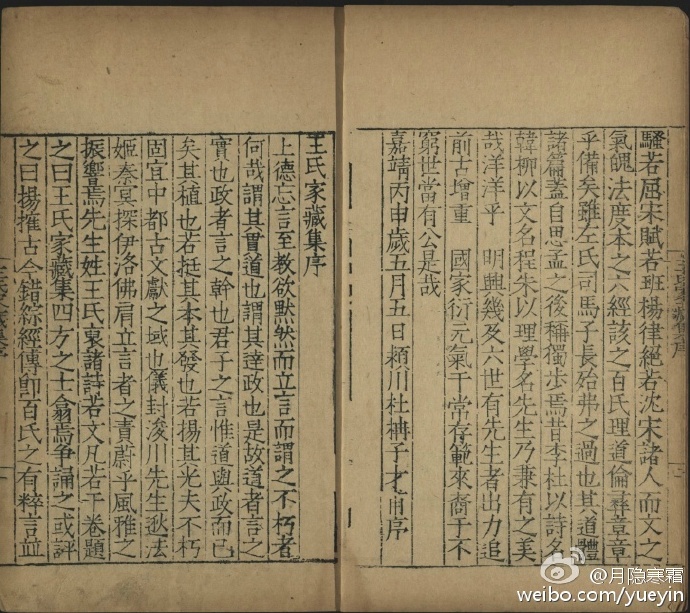 騷若屈宋賦若班楊律絕若沈宋諸人而文之
氣魄法度本之六經該之百氏理道倫彛章章
乎備矣雖左氏司馬子長殆弗之過也其道體
諸篇蓋自思孟之後稱獨步焉昔李杜以詩名
韓柳以文名程朱以理學名先生乃兼有之美
哉洋洋乎 明興幾及六世有先生者出力追
前古增重 國家衍元氣于常存範來裔于不
窮世當有公是哉
嘉靖丙申歲五月五日潁川杜柟子才甫序
王氏家藏集序
上德忘言至教欲默然而立言而謂之不朽者
何哉謂其貫道也謂其達政也是故道者言之
實也政者言之幹也君子之言惟道與政而已
矣其植也若挺其本其發也若揚其光夫不朽
固宜中都古文獻之域也儀封浚川先生逖法
姬秦冥探伊洛佛肩立言者之責蔚乎風雅之
振響焉先生姓王氏裒諸詩若文凡若干卷題
之曰王氏家藏集四方之士翕焉爭誦之或評
之曰揚搉古今錯綜經傳卽百氏之有粹言並
王氏家藏集序
@月隐寒霜
weibo.com/yueyin